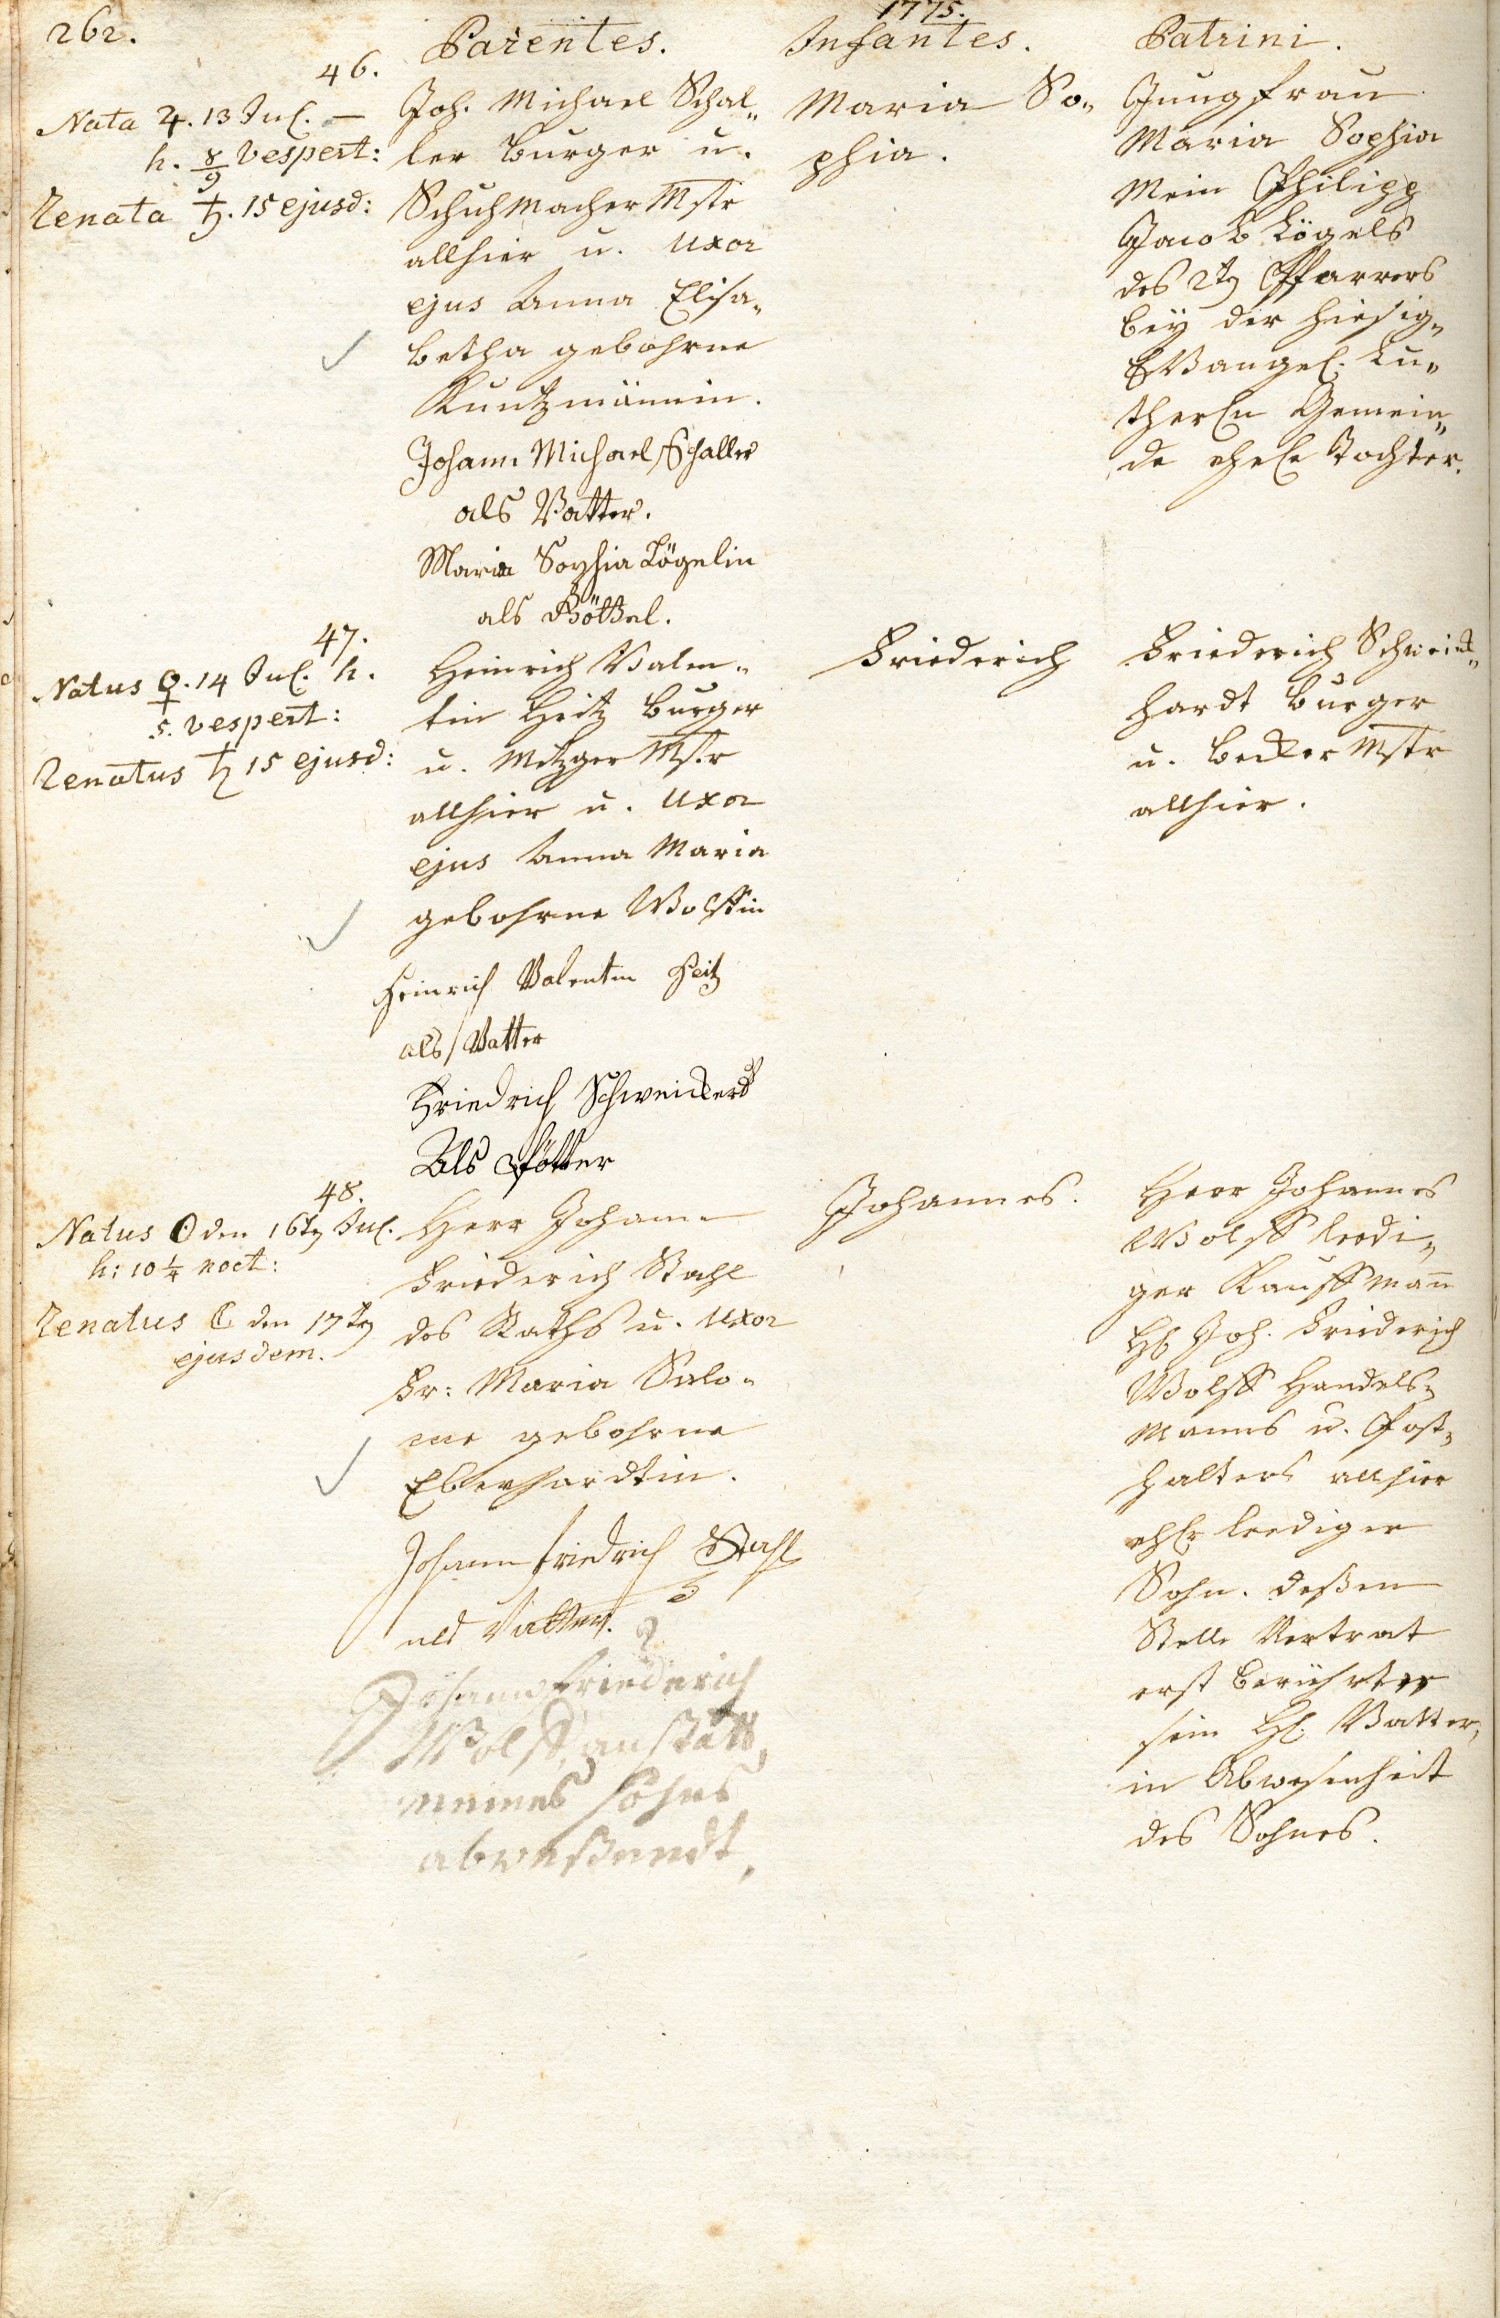 262.
1775.
Parentes.
Infantes.
Patrini.
46.
Nata ♃. 13 Jul. —
h. 8/9 vespert:
Renata ♄. 15 ejusd:
Joh. Michael Schal„
ler burger u.
Schuhmacher Mstr
allhier u. Uxor
ejus Anna Elisa„
betha gebohrne
Kuntzmännin.
Johann Michael Schaller
als Vatter.
Maria Sophia Lögelin
als Göttel.
Maria So„
phia.
Jungfrau
Maria Sophia
Mein Philipp
Jacob Lögels
des 2tn Pfarrers
bey der hiesig„
Evangel. Lu„
therln Gemein„
de ehele Tochter.
47.
Natus ♀. 14 Jul. h.
5. vespert:
Renatus ♄ 15 ejusd:
Heinrich Valen„
tin Heitz burger
u. Metzger Mstr
allhier u. Uxor
ejus Anna Maria
gebohrne Wolffin
Heinrich Valentin Heitz
als Vatter
Friedrich Schweickert
Als Pfötter
Friederich
Friederich Schweick„
hardt burger
u. becker Mstr
allhier.
48.
Natus ☉ den 16tn Jul.
h: 10 1/4 noct:
Renatus ☾ den 17tn
ejusdem.
Herr Johann
Friederich Stahl
des Raths u. Uxor
Fr: Maria Salo„
me gebohrne
Eberhardtin.
Johann Friedrich Stahl
als Vatter.
Johann Friederich
Wolff, anstatt,
meines sohns
abweßendt,
Johannes.
Herr Johannes
Wolff leedi„
ger Kauffmañ
H. Joh. Friederich
Wolff Handels„
manns u. Post„
halters allhier
ehlr leediger
Sohn. deßen
Stelle Vertrat
erst berührter
sein H. Vatter,
in Abwesenheit
des Sohnes.